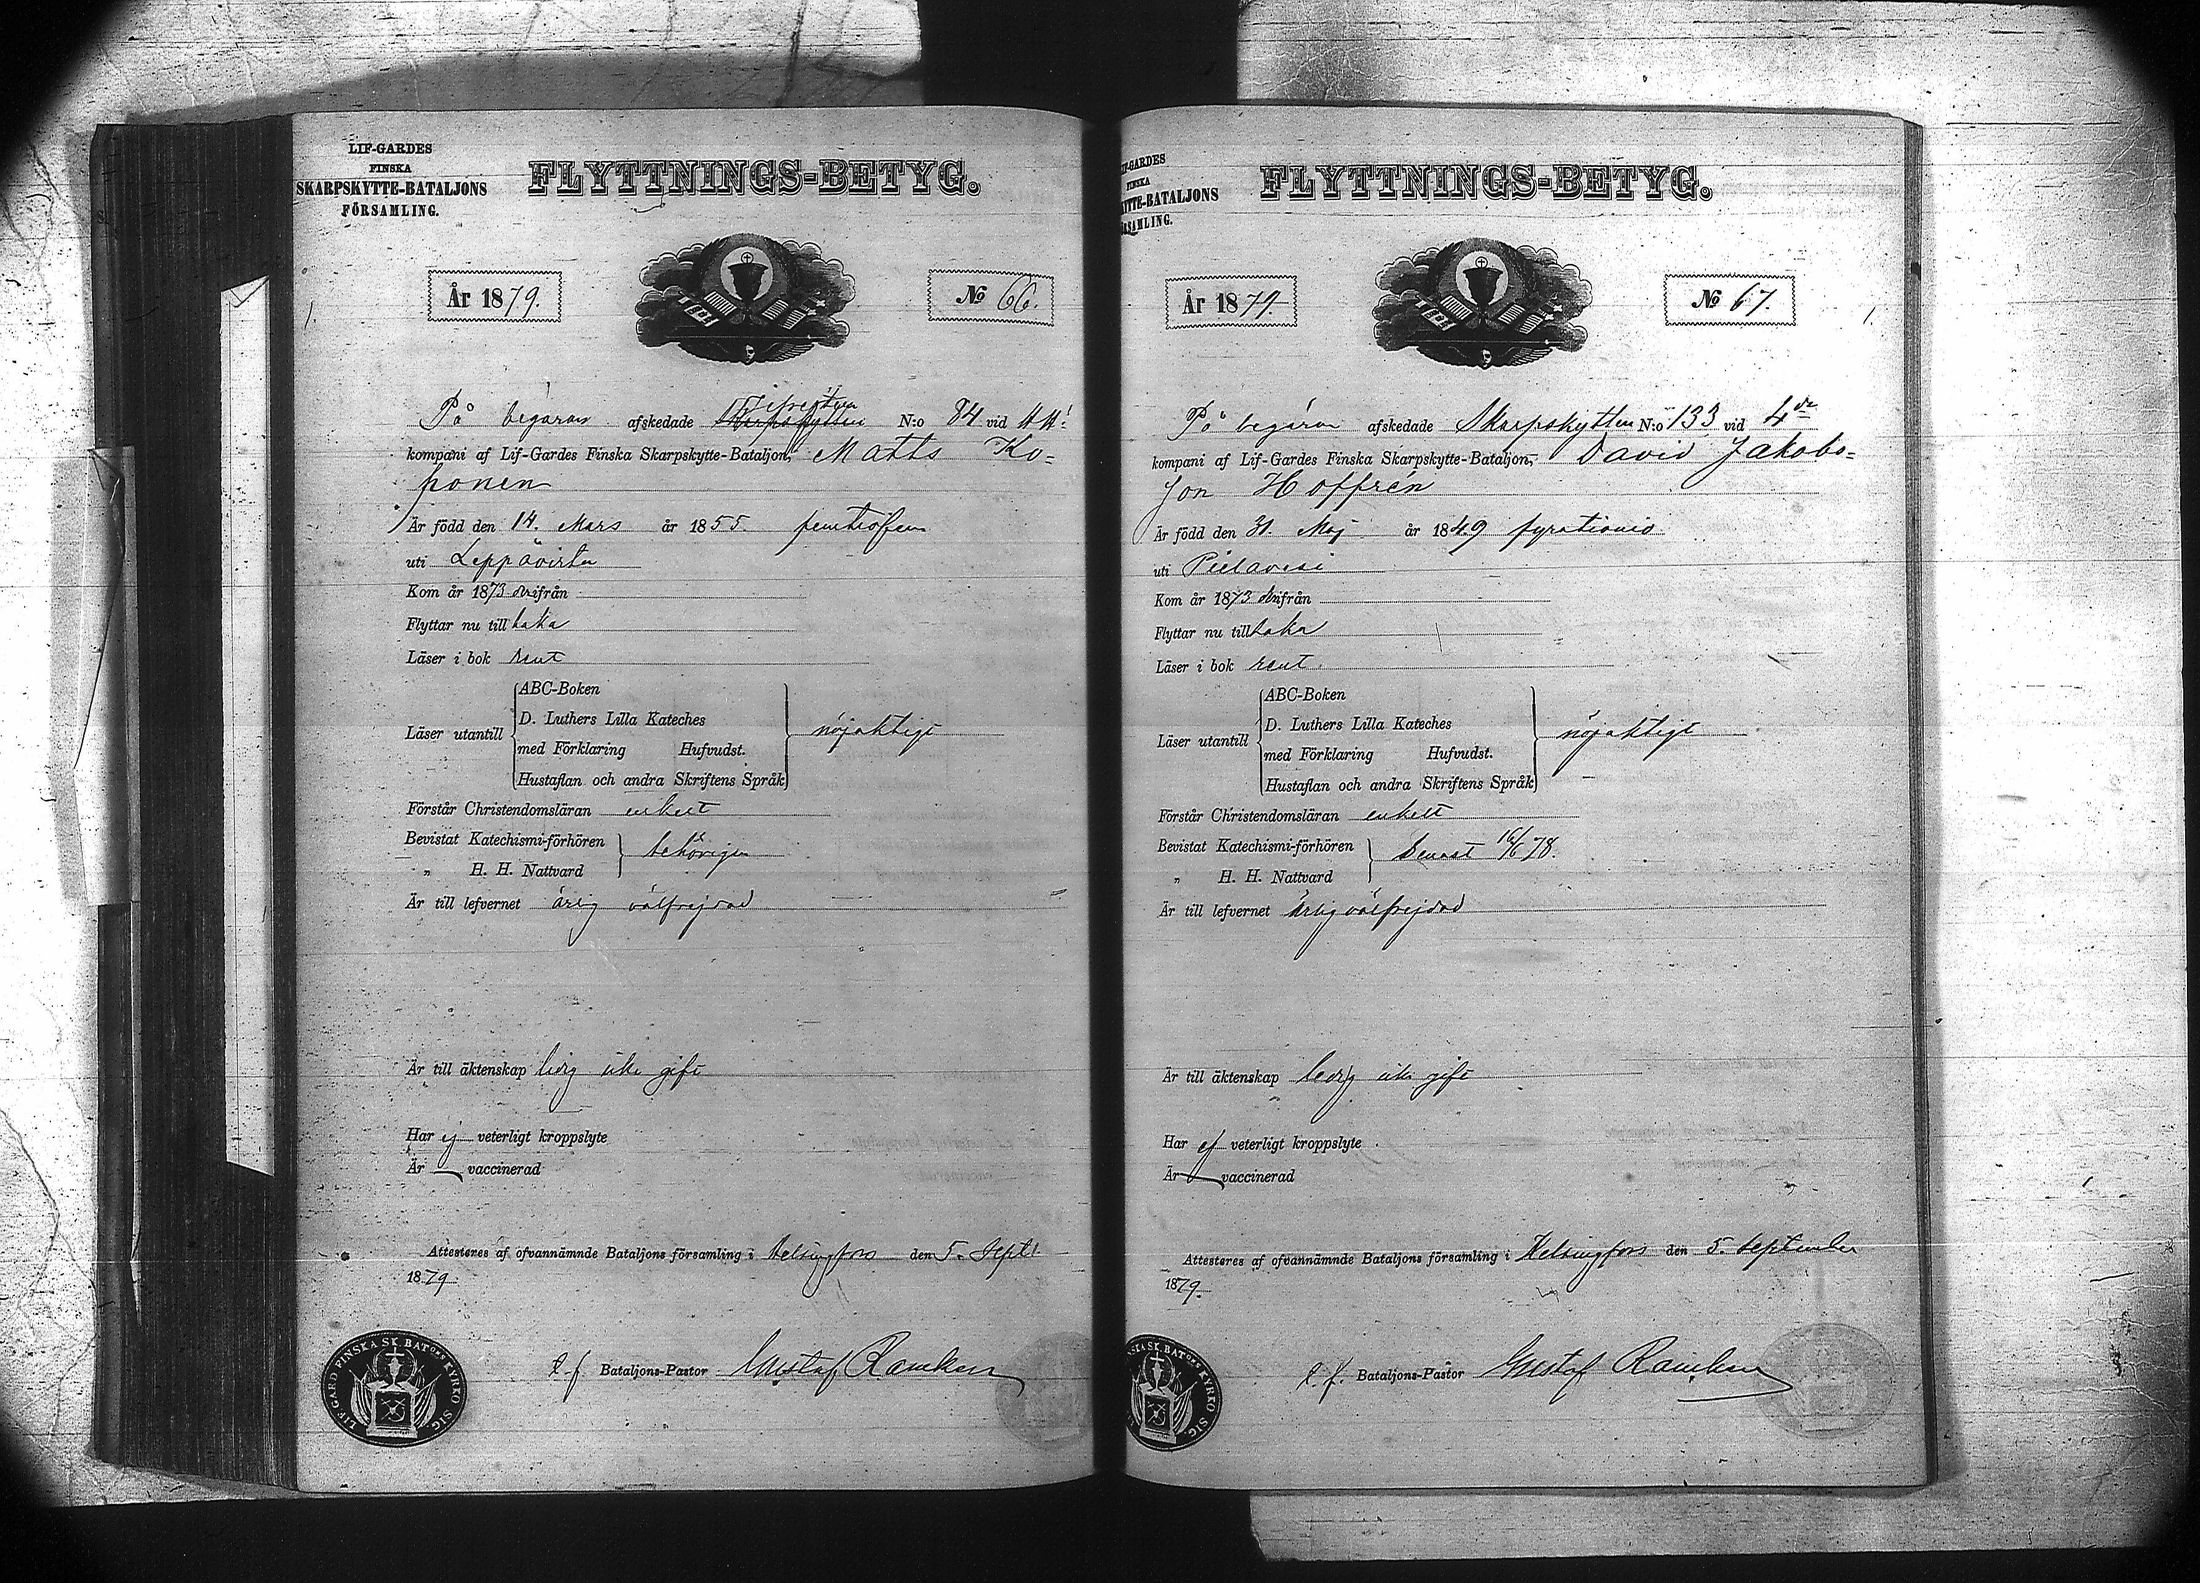 LIF-GARDES
FINSKA
SKARPSKYTTE-BATALJONS
FÖRSAMLING.
FLYTTNINGS-BETYG.
År 1879.
№ 66.
På begäran afskedade Skarpskytten N:o 84 vid
kompani af Lif-Gardes Finska Skarpskytte-Bataljon, Matts Ko=
ponen
Är född den 14. Mars år 1855. femtiofem
uti Leppävirta
Kom år 1873 derifrån
Flyttar nu till baka
Läser i bok rent
Läser utantill
ABC-Boken
D. Luthers Lilla Kateches
med Förklaring Hufvudst.
Hustaflan och andra Skriftens Språk
nöjaktigt
Förstår Christendomsläran enkelt
Bevistat Katechismi-förhören
„ H. H. Nattvard
behörigen
Är till lefvernet ärlig välfrejdad
Är till äktenskap ledig icke gift
Har ej veterligt kroppslyte
Är vaccinerad
Attesteres af ofvannämnde Bataljons församling i Helsingfors den 5. Sept.
1879.
LIF.GARD.FINSKA SK.BAT:ONS KYRKO SIG.
e.f. Bataljons-Pastor Gustaf
LIF-GARDES
FINSKA
YTTE-BATALJONS
RSAMLING.
FLYTTNINGS-BETYG.
År 1879.
№ 67.
På begäran afskedade Skarpskytten N:o 133 vid 4de
kompani af Lif-Gardes Finska Skarpskytte-Bataljon, David Jakobs=
son Hoffrén
Är född den 31. Maj år 1849 fyrationio
uti Pielavesi
Kom år 1873 derifrån
Flyttar nu till baka
Läser i bok rent.
Läser utantill
ABC-Boken
D. Luthers Lilla Kateches
med Förklaring Hufvudst.
Hustaflan och andra Skriftens Språk
nöjaktigt
Förstår Christendomsläran enkelt
Bevistat Katechismi-förhören
„ H. H. Nattvard
senast 16/6 78.
Är till lefvernet ärlig välfrejdad
Är till äktenskap ledig icke gift
Har ej veterligt kroppslyte
Är vaccinerad
Attesteres af ofvannämnde Bataljons församling i Helsingfors den 5. September
1879.
SKA SK.BAT:ONS KYRKO SIG.
e.f. Bataljons-Pastor Gustaf